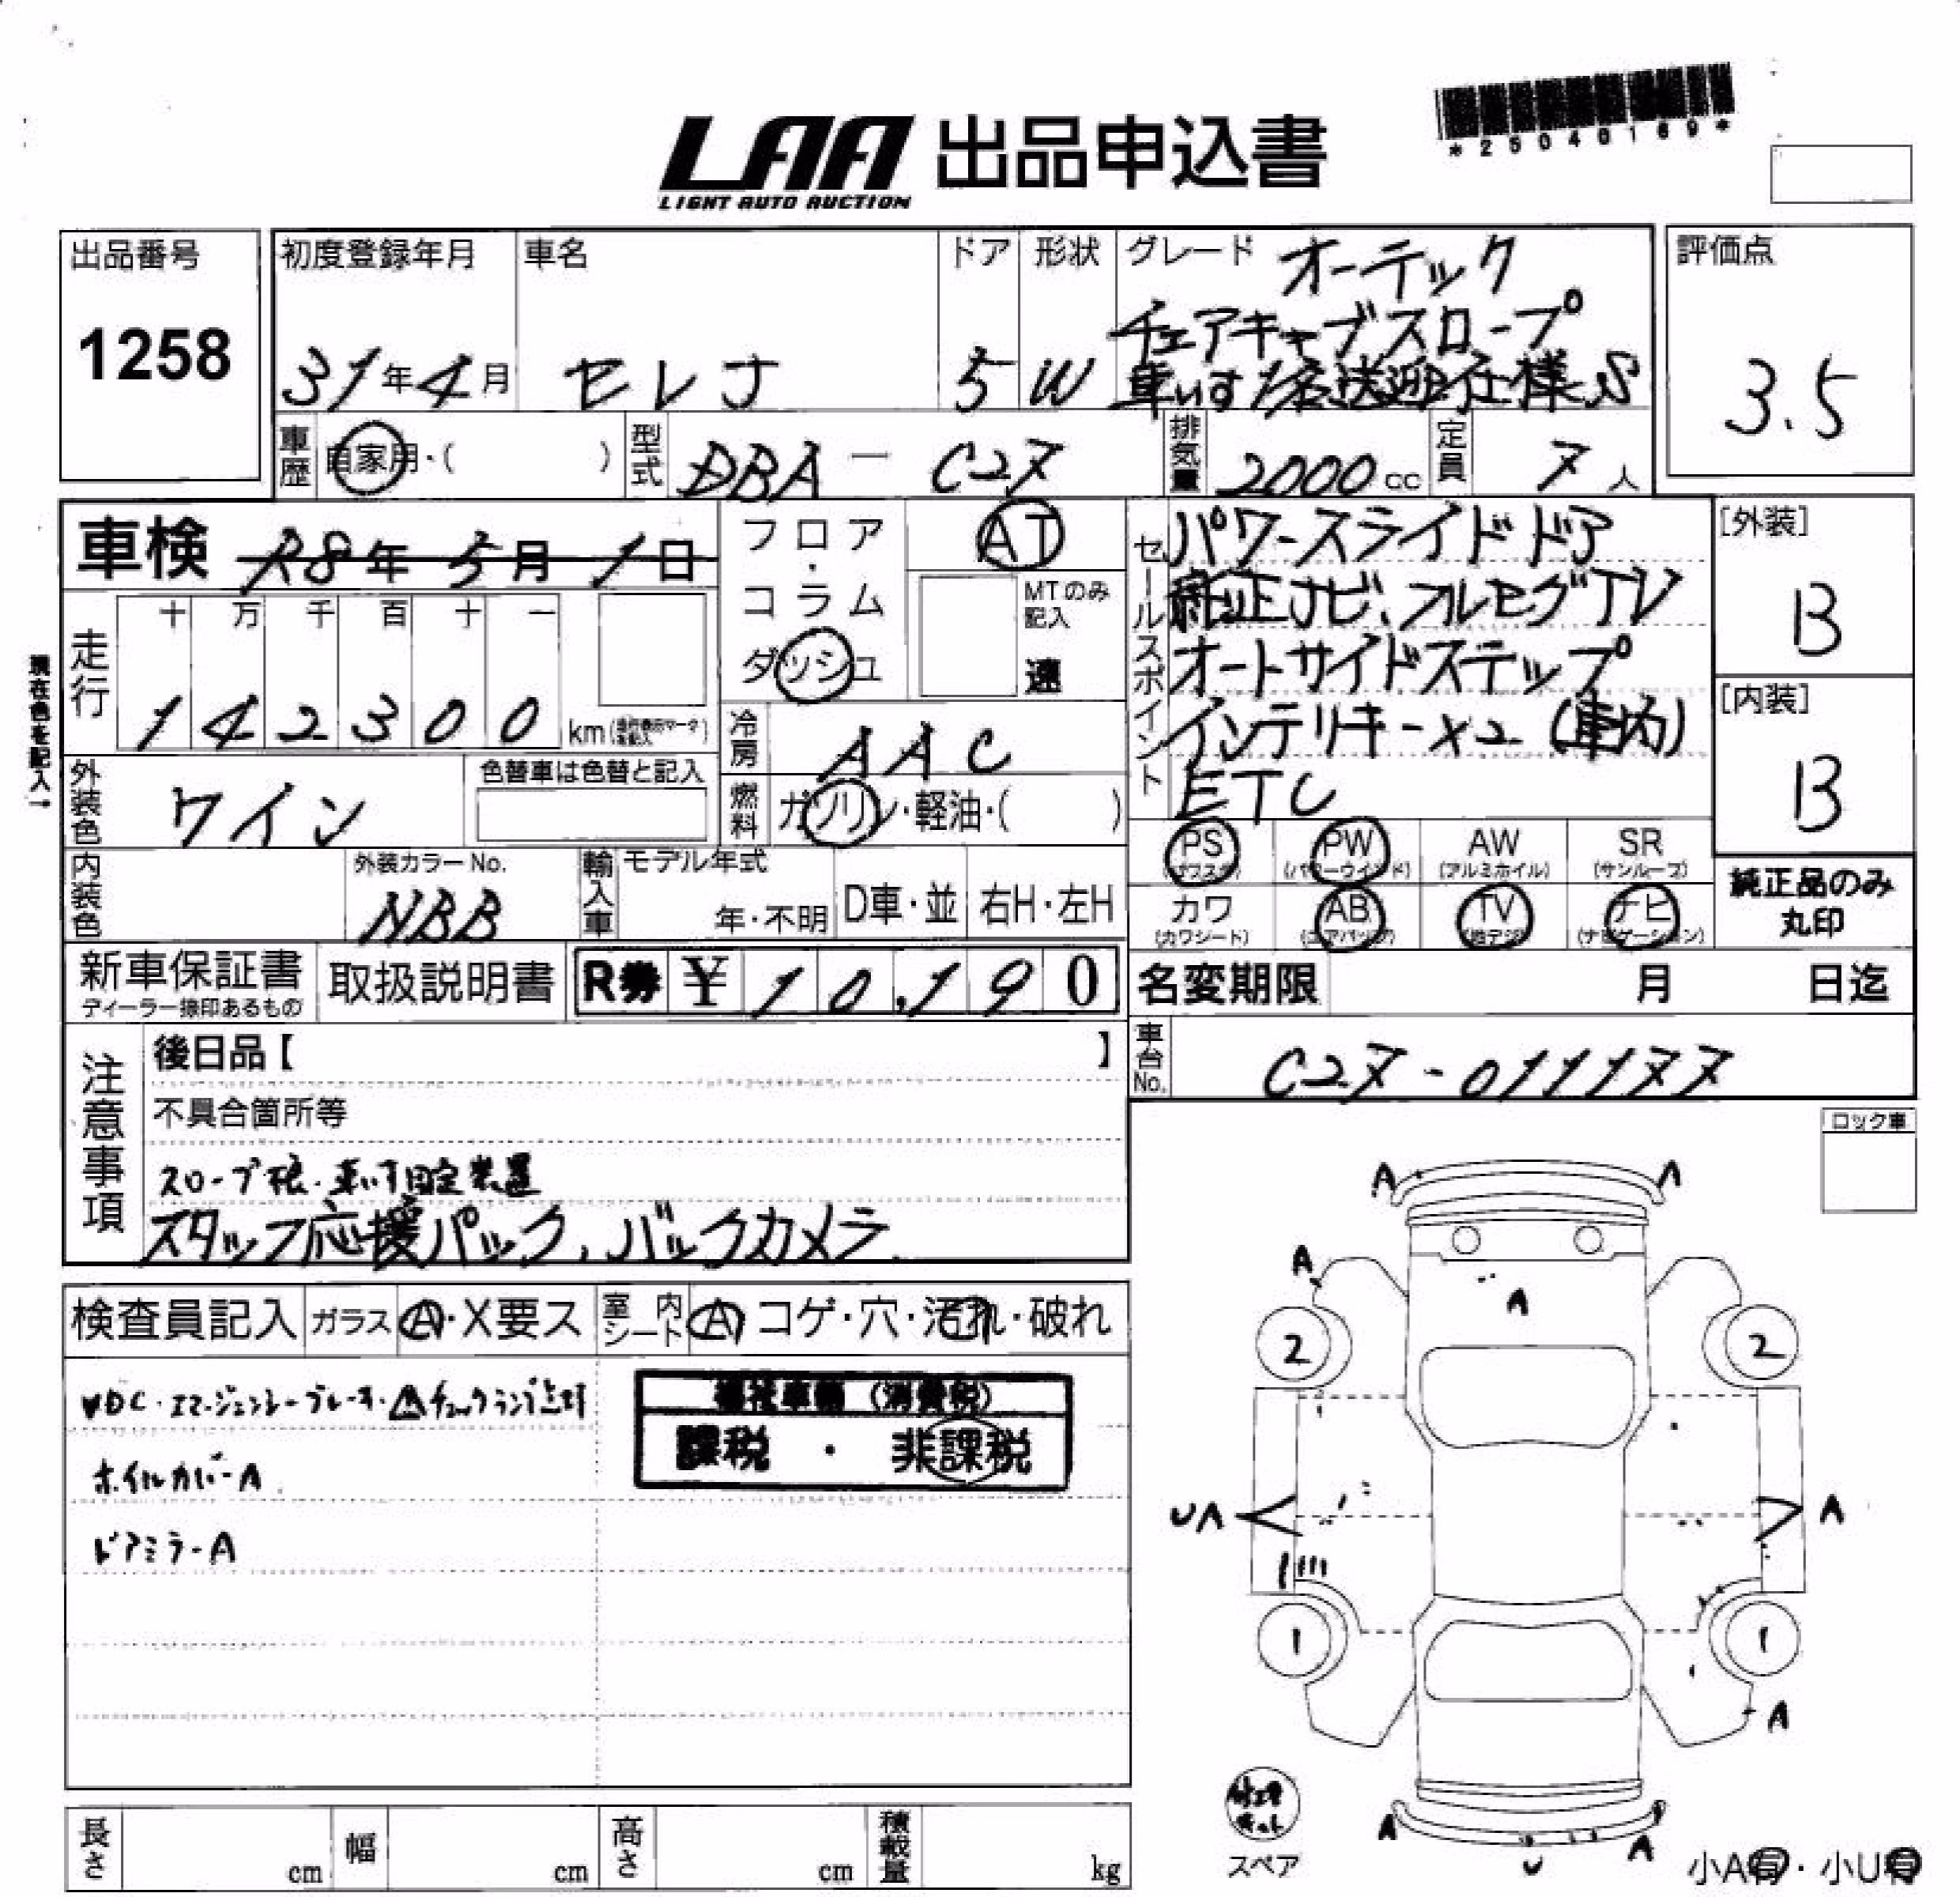 *25040169*
LAA 出品申込書
LIGHT AUTO AUCTION
出品番号
1258
初度登録年月
31年4月
車名
セレナ
ドア
5
形状
W
グレード
オーテック
チェアキャブスロープ
車いす1名送迎仕様S
評価点
3.5
車歴 自家用・( )
型式 DBA - C27
排気量 2000 cc
定員 7 人
車検 R8年 5月 1日
走行
十 万 千 百 十 一
1 4 2 3 0 0 km
フロア・コラム
ダッシュ
AT
MTのみ記入
速
セールスポイント
パワースライドドア
純正ナビ、フルセグTV
オートサイドステップ
インテリキーX2 (車内)
ETC
[外装]
B
[内装]
B
現在色を記入→
外装色 ワイン
色替車は色替と記入
冷房 AAC
燃料 ガソリン・軽油・( )
内装色
外装カラーNo.
NBB
輸入車
モデル年式
年・不明
D車・並
右H・左H
PS (パワステ)
PW (パワーウインド)
AW (アルミホイル)
SR (サンルーフ)
カワ (カワシート)
AB (エアバッグ)
TV (地デジ)
ナビ (ナビゲーション)
純正品のみ
丸印
新車保証書
ディーラー捺印あるもの
取扱説明書
R券 ¥ 10,190
名変期限 月 日迄
車台No. C27-011177
注意事項
後日品【 】
不具合箇所等
スロープ板・車いす固定装置
スタッフ応援パック、バックカメラ
ロック車
検査員記入
ガラス A・X要ス
室内シート A コゲ・穴・汚れ・破れ
VDC・エマージェンシーブレーキ・⚠チェックランプ点灯
ホイルカバーA
ドアミラーA
福祉車輌(消費税)
課税 ・ 非課税
A A
A
A
2 2
UA A
1 1
A
A A
U
スペア
小A有・小U有
長さ cm
幅 cm
高さ cm
積載量 kg